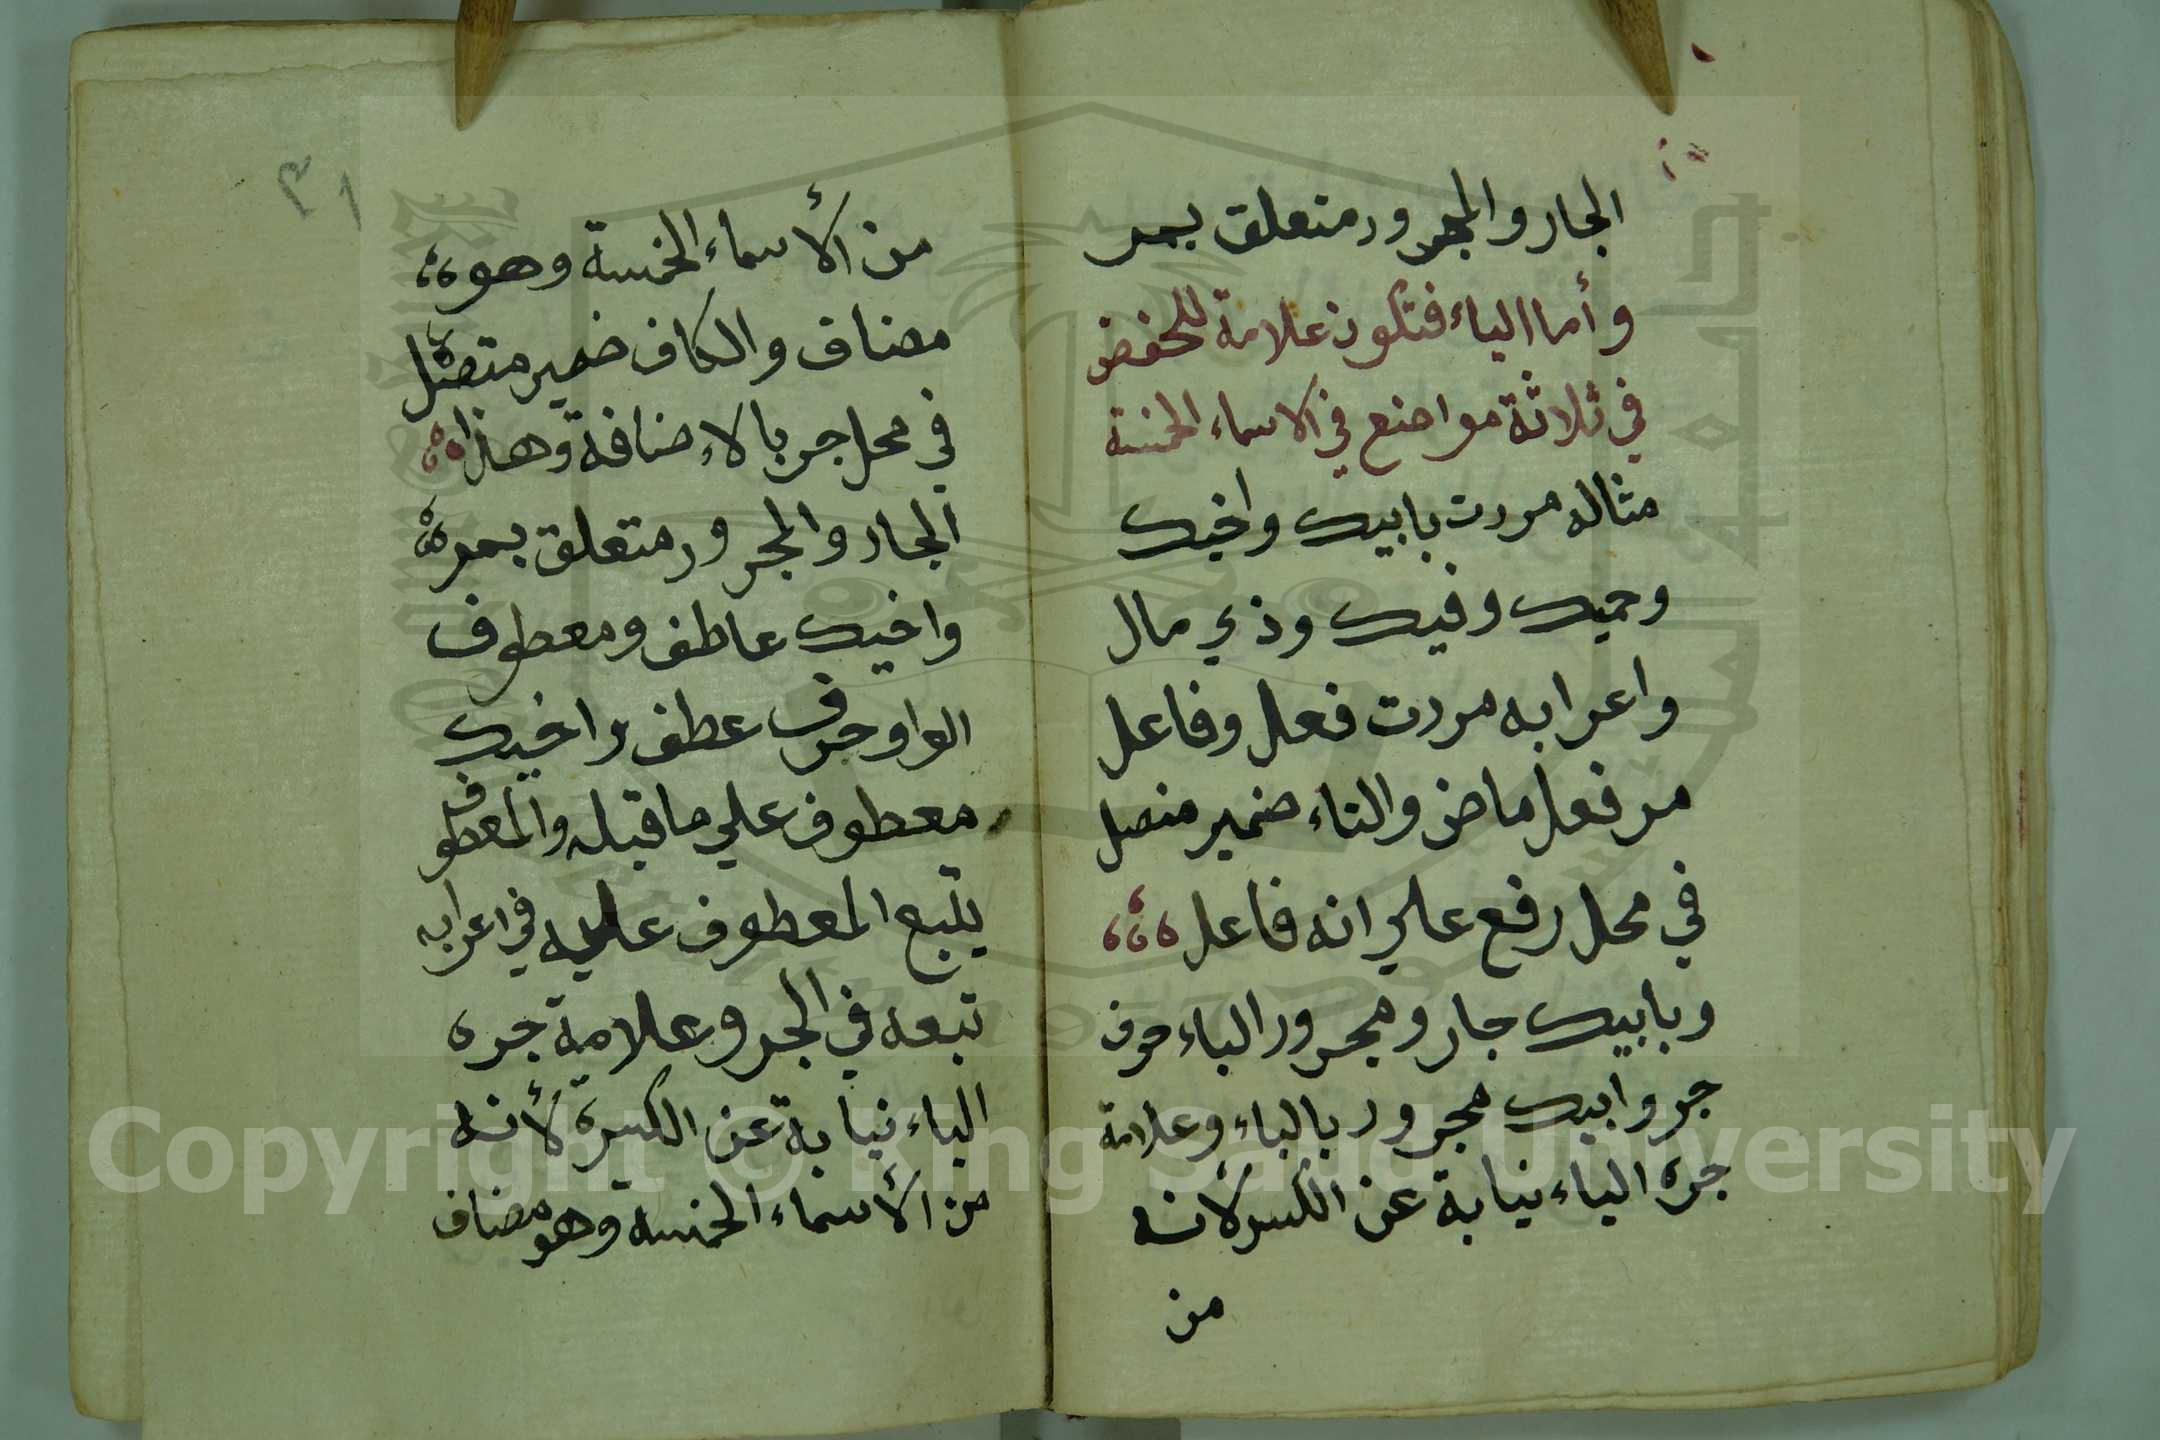 الجار والمجرور متعلق بمر
وأما الياء فتكون علامة للخفض
في ثلاثة مواضع في الاسماء الخمسة
مثاله مررت بابيك واخيك
وحميك وفيك وذي مال
واعرابه مررت فعل وفاعل
مر فعل ماض والتاء ضمير متصل
في محل رفع علي انه فاعل
وبابيك جار ومجرور الباء حرف
جر وابيك مجرور بالباء وعلامة
جره الياء نيابة عن الكسر لأنه
من
٣١
من الأسماء الخمسة وهو
مضاف والكاف ضمير متصل
في محل جر بالاءضافة وهذا
الجار والمجرور متعلق بمر
واخيك عاطف ومعطوف
الواو حرف عطف واخيك
معطوف علي ما قبله والمعطوف
يتبع المعطوف عليه في اعرابه
تبعه في الجر وعلامة جره
الياء نيابة عن الكسرة لأنه
من الأسماء الخمسة وهو مضاف
Copyright © King Saud University